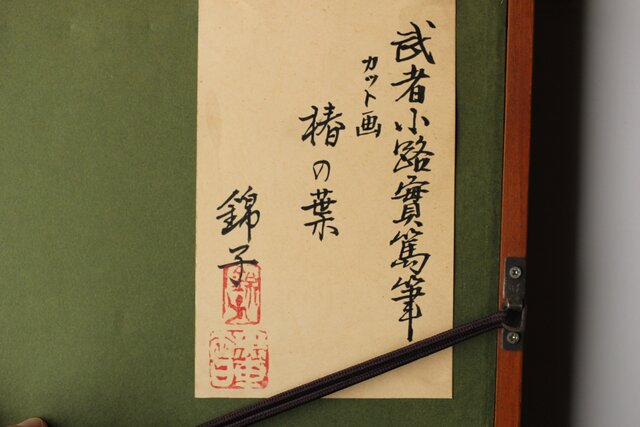 武者小路實篤筆
カット画
椿の葉
錦子